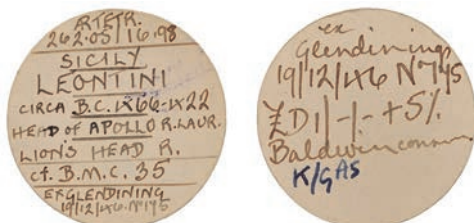 AR TETR.
262.05/16.98
SICILY
LEONTINI
CIRCA B.C. 466-422
HEAD OF APOLLO R. LAUR.
LION'S HEAD R.
cf. B.M.C. 35
EX GLENDINING
19/12/46. Nº 145
ex
Glendinings
19/12/46 Nº 145
£D1/-/- +5%
Baldwin comm
K/GAS